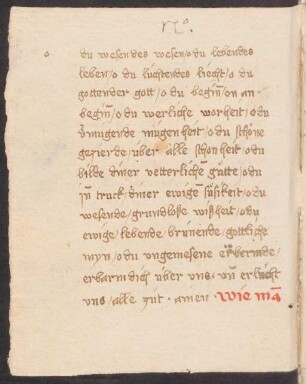 du wesendes wesen / o du lebendes
leben / o du lúchtendes liecht / o du
gottender gott / o du begin̄ / on an
begin̄ / o du werliche worheit / o du
mugenheit / o du schöne
gezierde / über alle schonheit / o du
bilde diner vetterlichē gütte / o du
in̄ truck / diner ewigē süsikeit / o du
wesende / grundlosse wißheit / o du
ewige / lebende / brunende / gottliche
myn / o du ungemesene
erbarm dich über uns / vn̄ erlúcht
uns / alle zÿt · amen · Wie mā